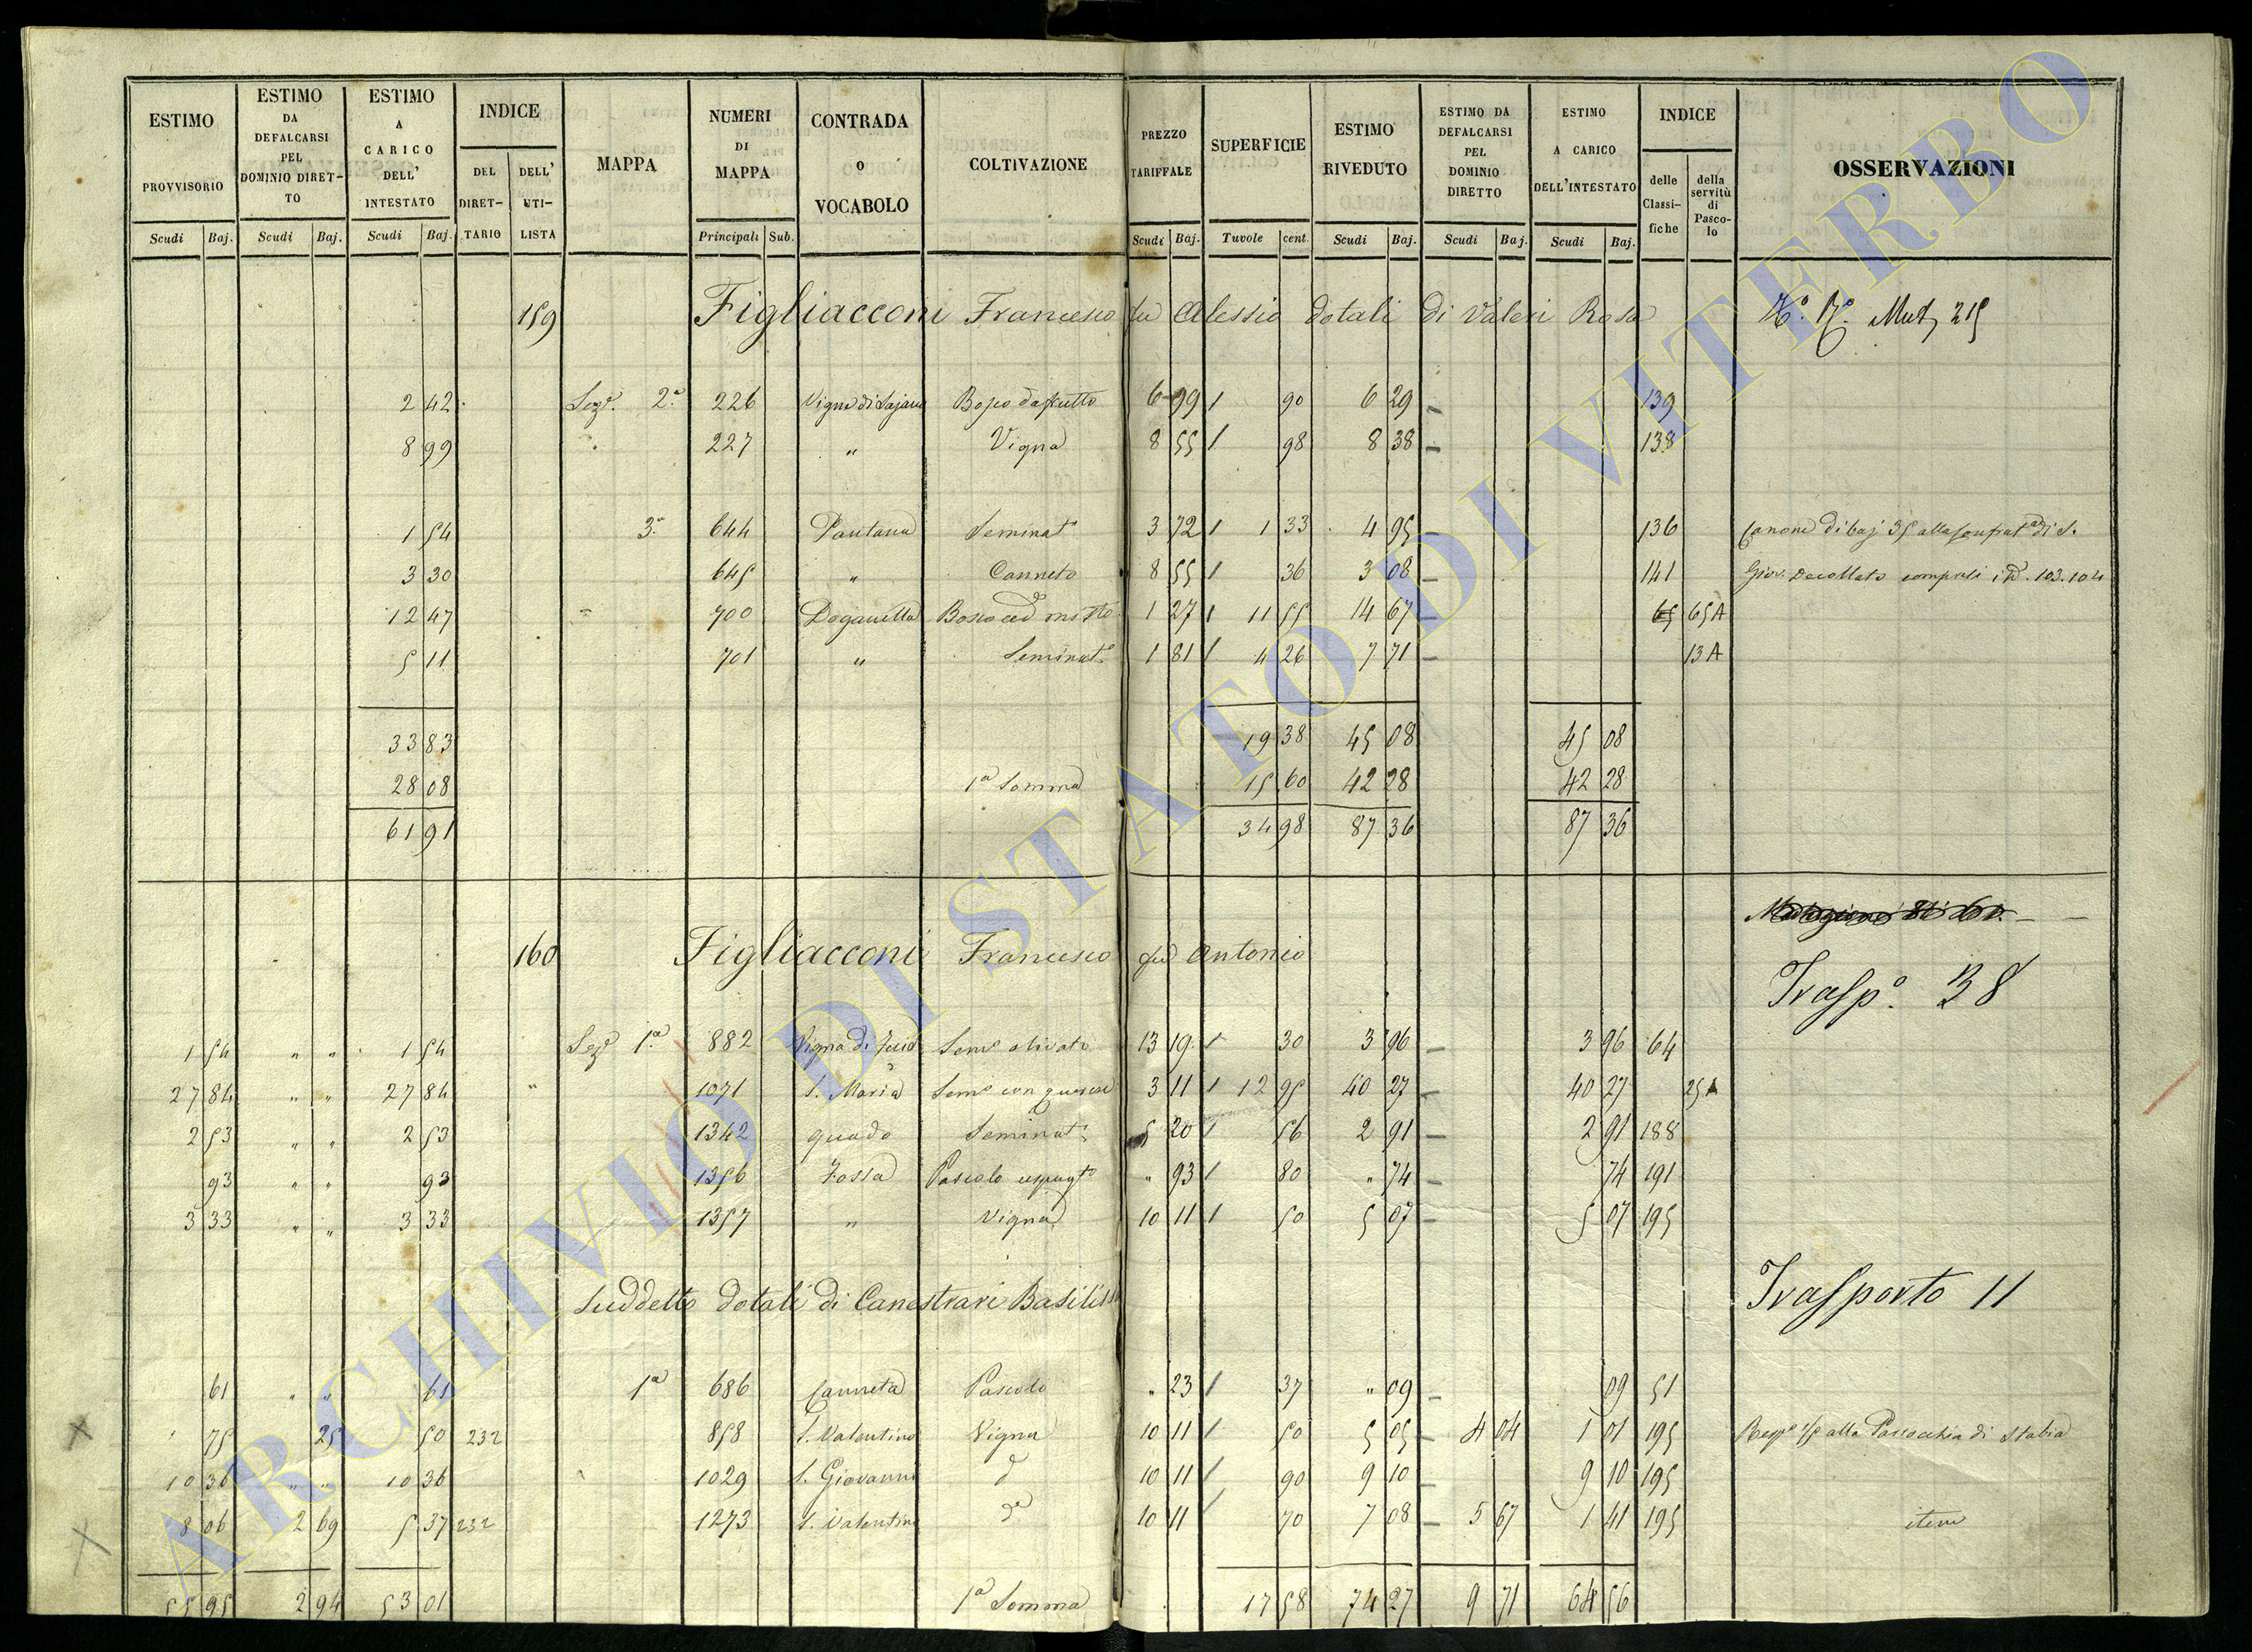 ESTIMO PROVVISORIO Scudi Baj.
ESTIMO DA DEFALCARSI PEL DOMINIO DIRET-TO Scudi Baj.
ESTIMO A CARICO DELL' INTESTATO Scudi Baj.
INDICE DEL DIRET-TARIO DELL' UTI-LISTA
MAPPA
NUMERI DI MAPPA Principali Sub.
CONTRADA O VOCABOLO
COLTIVAZIONE
PREZZO TARIFFALE Scudi Baj.
SUPERFICIE Tavole cent.
ESTIMO RIVEDUTO Scudi Baj.
ESTIMO DA DEFALCARSI PEL DOMINIO DIRETTO Scudi Baj.
ESTIMO A CARICO DELL'INTESTATO Scudi Baj.
INDICE delle Classi-fiche della servitù di Pasco-lo
OSSERVAZIONI
159 Figliacconi Francesco fu Alessio dotali di Valeri Rosa Mut, 215
2 42 Sez.e 2.a 226 Vigna di Bosco da frutto 6 99 90 6 29 139
8 99 227 " Vigna 8 55 98 8 38 138
1 54 3.a 644 Pantana Seminat.o 3 72 1 33 4 95 136 Canone di baj 35 alla Confrat.a di S.
3 30 645 " Canneto 8 55 36 3 08 141 Giov. Decollato compresi i 103. 104
12 47 " 700 Doganella Bosco ced misto 1 27 11 55 14 67 65 65A
5 11 701 " Seminat.o 1 81 4 26 7 71 13A
33 83 19 38 45 08 45 08
28 08 1a Somma 15 60 42 28 42 28
61 91 34 98 87 36 87 36
160 Figliacconi Francesco fu Antonio
Trasp.o 38
1 54 " " 1 54 Sez.e 1.a 882 Vigna di Sem.e olivato 13 19 30 3 96 3 96 64
27 84 " " 27 84 " 1071 S. Maria Sem.e con querce 3 11 12 95 40 27 40 27 25A
2 53 " " 2 53 1342 guado Seminat.o 5 20 56 2 91 2 91 188
93 " " 93 1356 Fossa Pascolo " 93 80 " 74 74 191
3 33 " " 3 33 1357 " Vigna 10 11 50 5 07 5 07 195
Suddetto dotali di Canestrari Basilissa Trasporto 11
61 " " 61 1a 686 Canneta Pascolo " 23 37 " 09 09 51
75 25 50 232 858 S. Valentino Vigna 10 11 50 5 05 4 04 1 01 195 alla Parrocchia di Stabia
10 36 " " 10 36 1029 S. Giovanni d 10 11 90 9 10 9 10 195
8 06 2 69 5 37 232 1273 S. Valentino d.a 10 11 70 7 08 5 67 1 41 195 item
55 95 2 94 53 01 1a Somma 17 58 74 27 9 71 64 56
ARCHIVIO DI STATO DI VITERBO